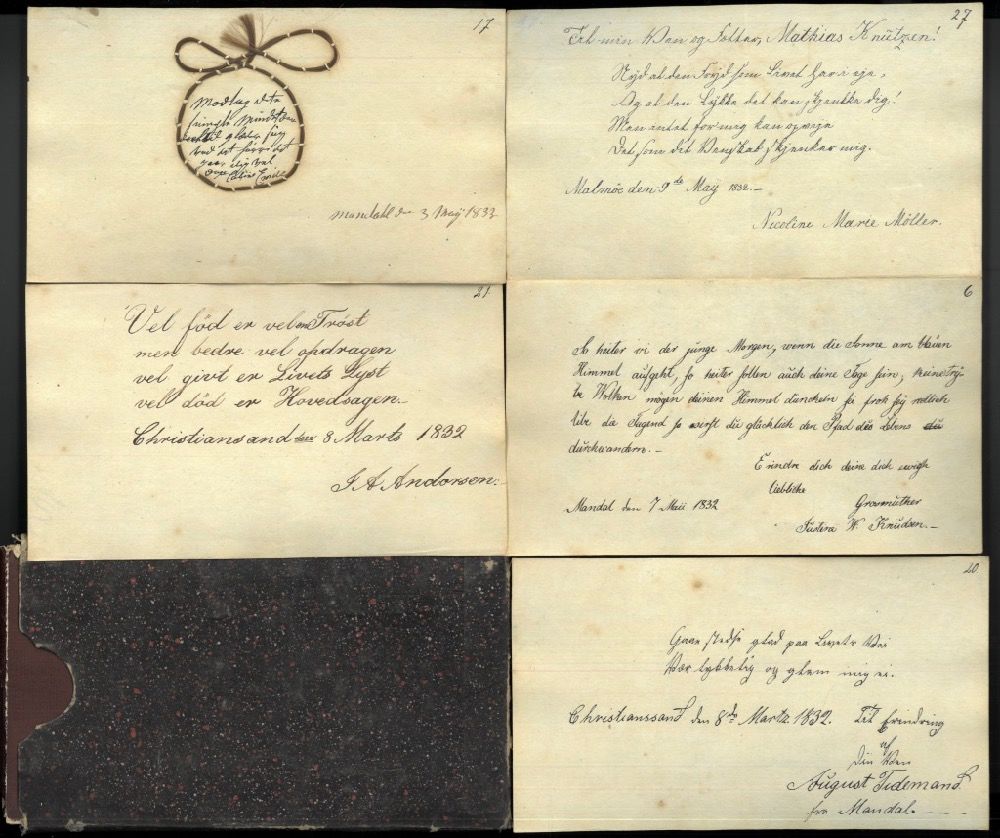 17
Modtag dette
ved
Mandahl den 3 Maÿ 1833
27
Til min Ven og Fetter, Mathias Knützen!
Nÿd al den Frÿd som Livet har i eje,
Og al den Lÿkke det kan skjenke dig!
Men intet for mig kan opveje
Det som dit Venskab skjenker mig.
Malmöe den 9de Maÿ 1832.-
Nicoline Marie Möller.
21
Vel född er vel en Tröst
men bedre vel opdragen
vel givt er Livets Lyst
vel död er Hovedsagen.-
Christiansand den 8 Marts 1832
J A Andorsen.-
6
So heiter wi der junge Morgen, wenn die Sonne am blauen
Himmel aufgeht, so heiter sollen auch deine Tage sein, keine trü-
be Wolken mögen deinen Himmel dunckeln sei froh seÿ redlich
übe da Tugend so wirst du glücklich den Pfad des Lebens
durchwandern.-
Erindre dich deine dich ewigh
liebliche
Grosmuther
Mandal den 7 Maii 1832
Justina W. Knüdsen.-
20
Gaae stedse glad paa Livets Vei
Vær lykkelig og glem mig ei.
Christianssand den 8de Marts 1832. Til Erindring
af
Din Ven
August Tidemand.
fra Mandal.